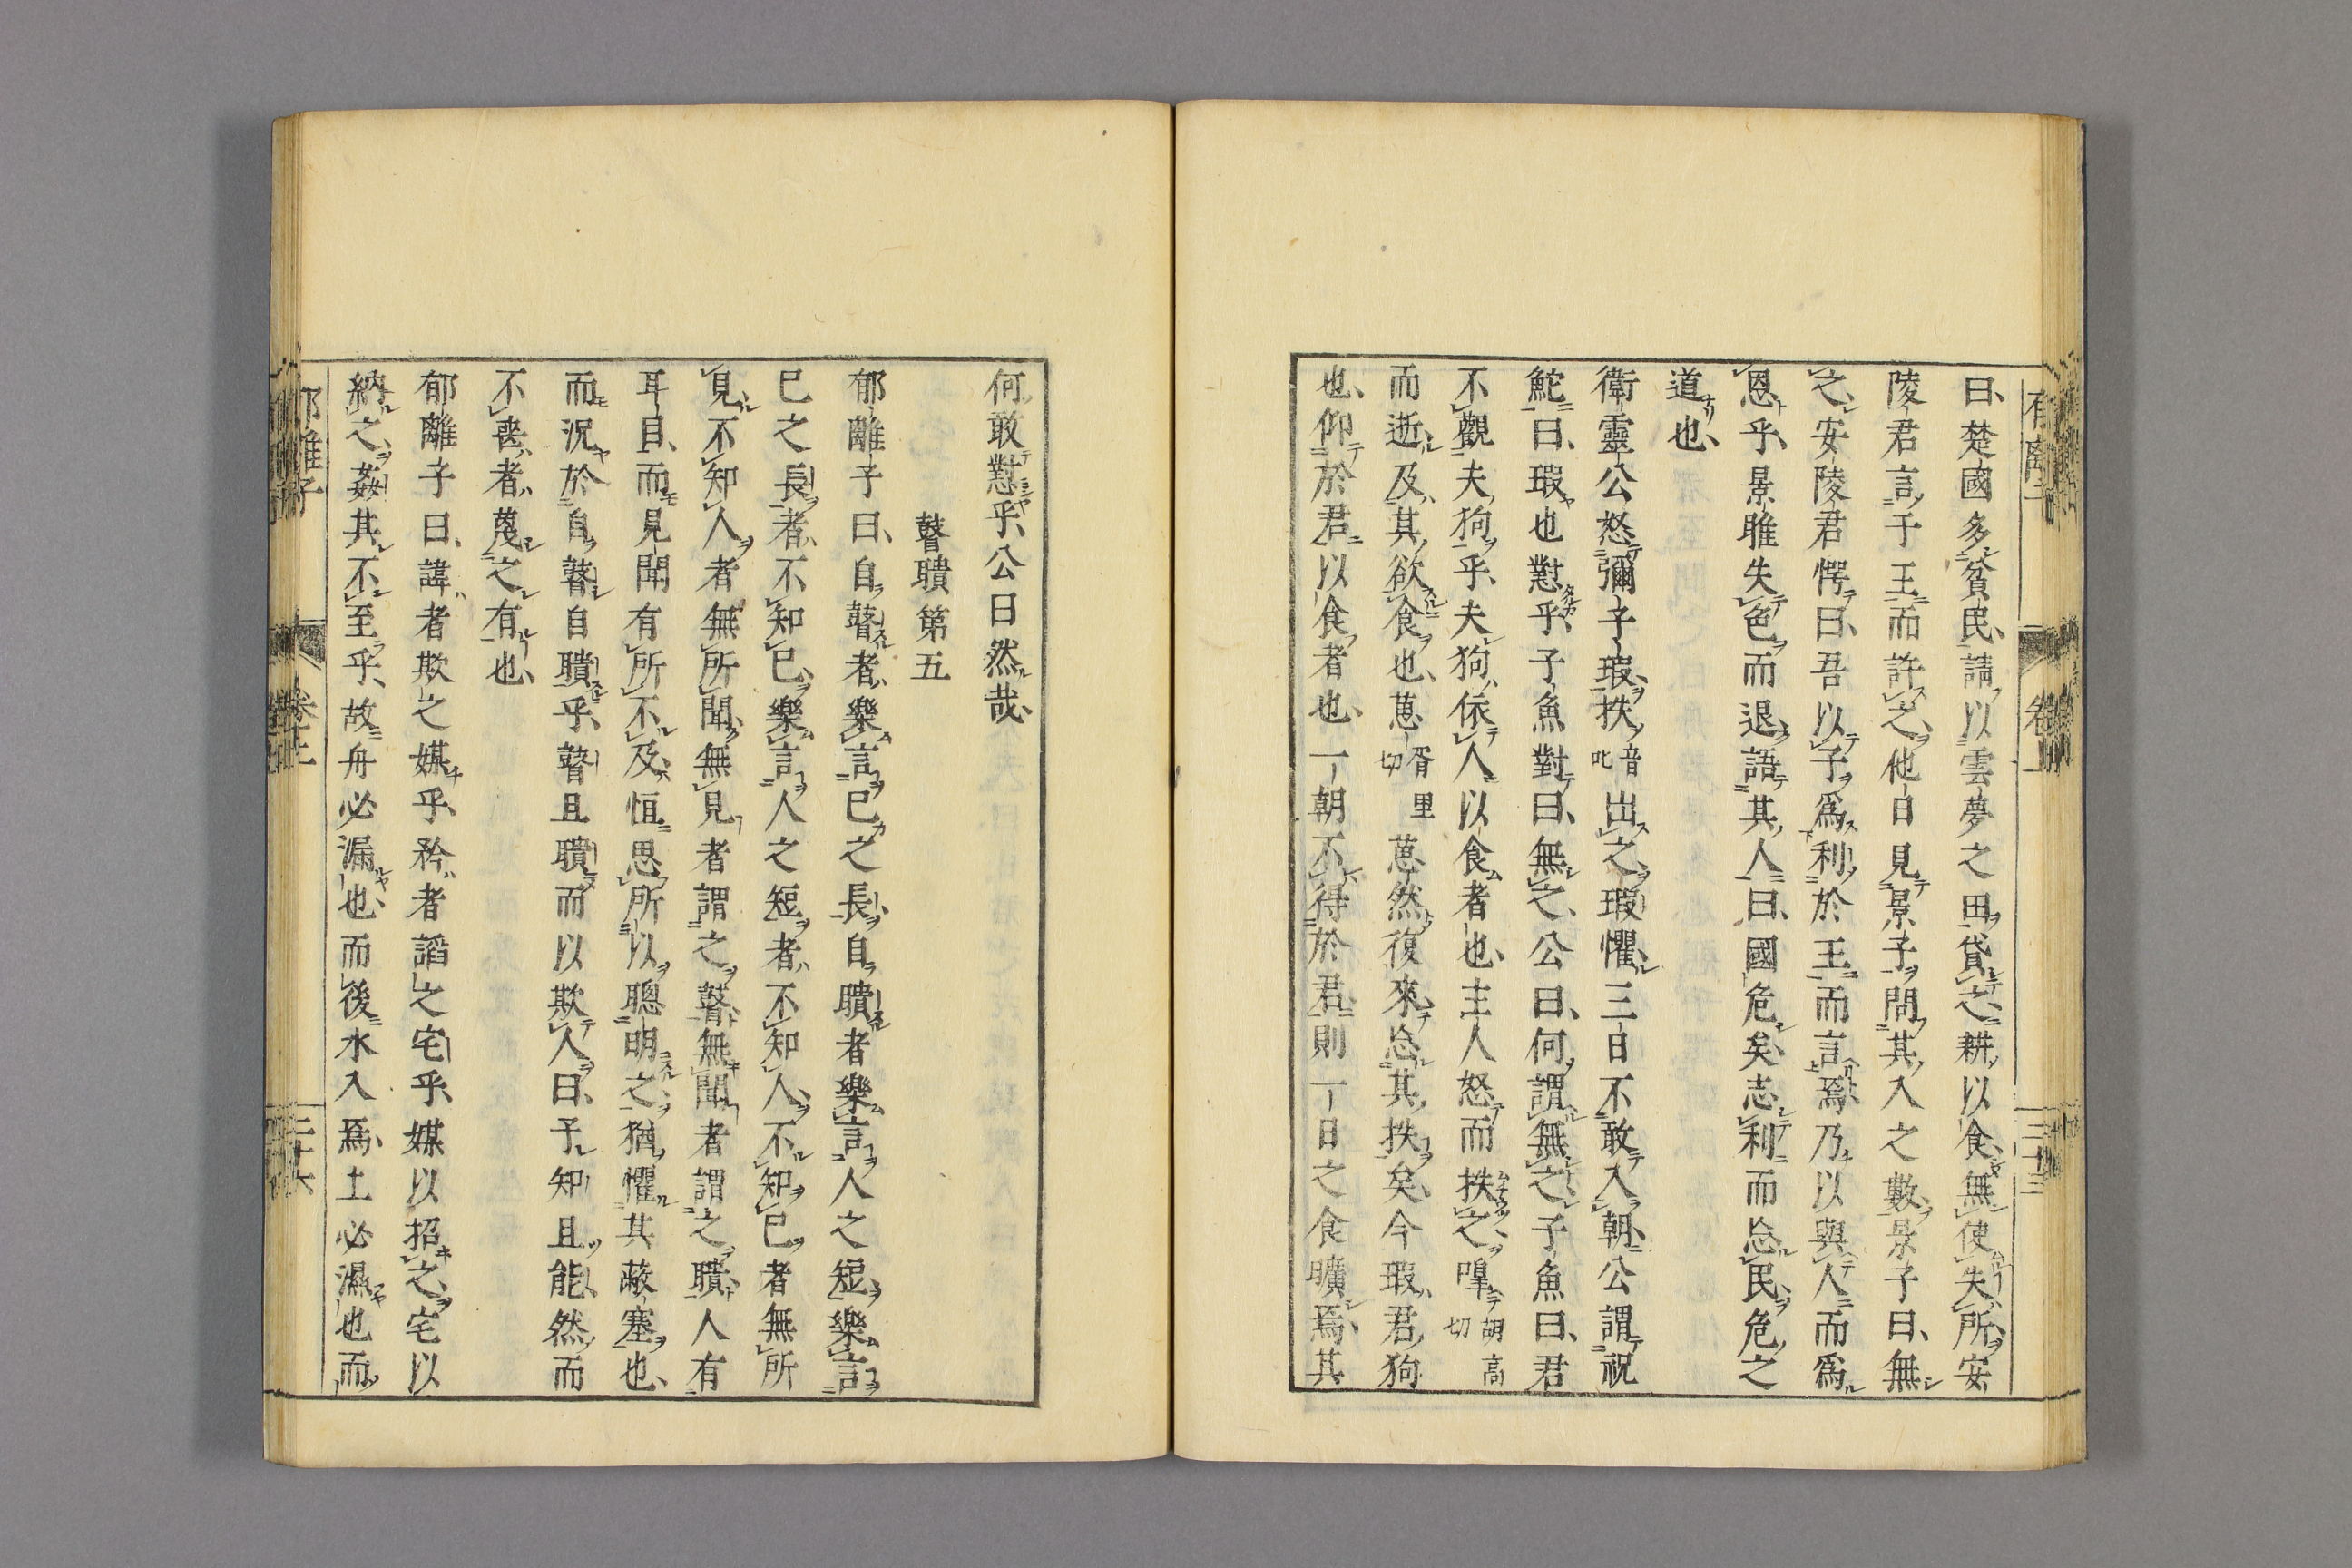 曰楚國多貧民請以雲夢之田貸之耕以食無使失所安
陵君言于王而許之他日見景子問其入之數景子曰無
之安陵君愕曰吾以子爲利於王而言焉乃以與人而爲
恩乎景睢失色而退語其人曰國危矣志利而忘民危之
道也
衛靈公怒彌子瑕抶音叱出之瑕懼三日不敢入朝公謂祝
鮀曰瑕也懟乎子魚對曰無之公曰何謂無之子魚曰君
不觀夫狗乎夫狗依人以食者也主人怒而抶之嘷胡高切
而逝及其欲食也葸胥里切葸然復來忘其抶矣今瑕君狗
也仰於君以食者也一朝不得於君則一日之食曠焉其
何敢懟乎公曰然哉
瞽聵第五
郁離子曰自瞽者樂言已之長自聵者樂言人之短樂言
已之長者不知已樂言人之短者不知人不知已者無所
見不知人者無所聞無見者謂之瞽無聞者謂之聵人有
耳目而見聞有所不及恒思所以聰明之猶懼其蔽塞也
而況於自瞽自聵乎瞽且聵而以欺人曰予知且能然而
不喪者蔑之有也
郁離子曰諱者欺之媒乎矜者謟之宅乎媒以招之宅以
納之姦其不至乎故舟必漏也而後水入焉土必濕也而
郁離子
卷上
二十六